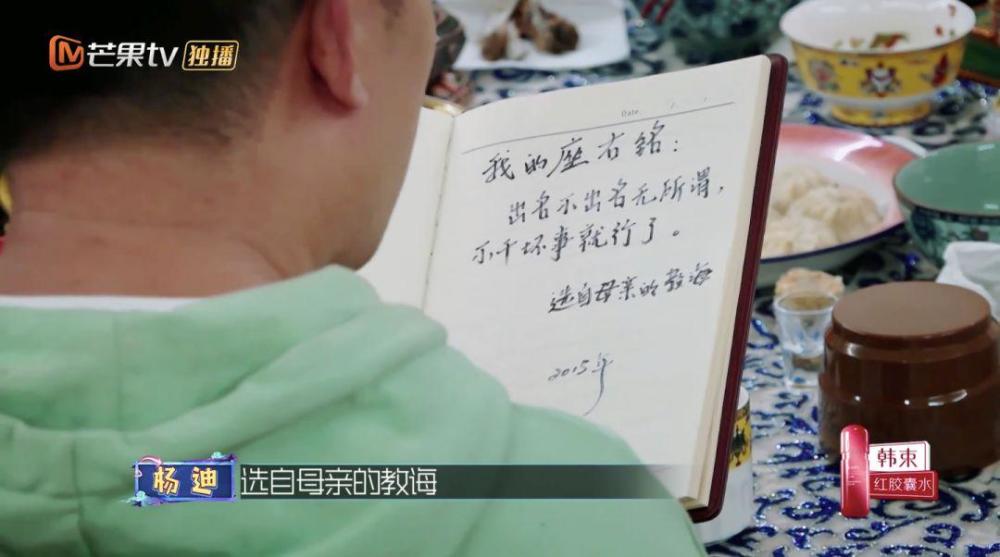 芒果tv 独播
Date
我的座右铭：
出名不出名无所谓，
不干坏事就行了。
选自母亲的教诲
2015年
杨迪 选自母亲的教诲
韩束
红胶囊水